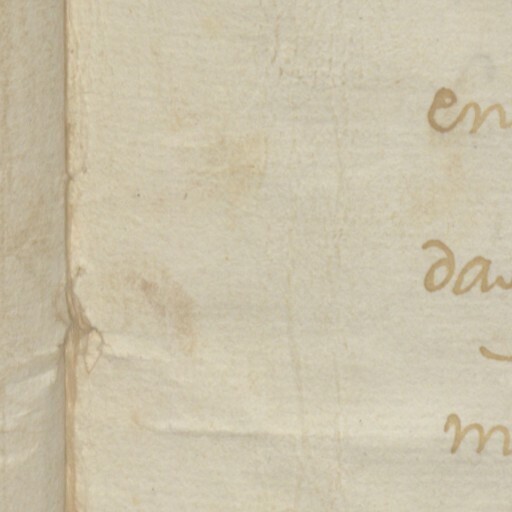 en
da
m